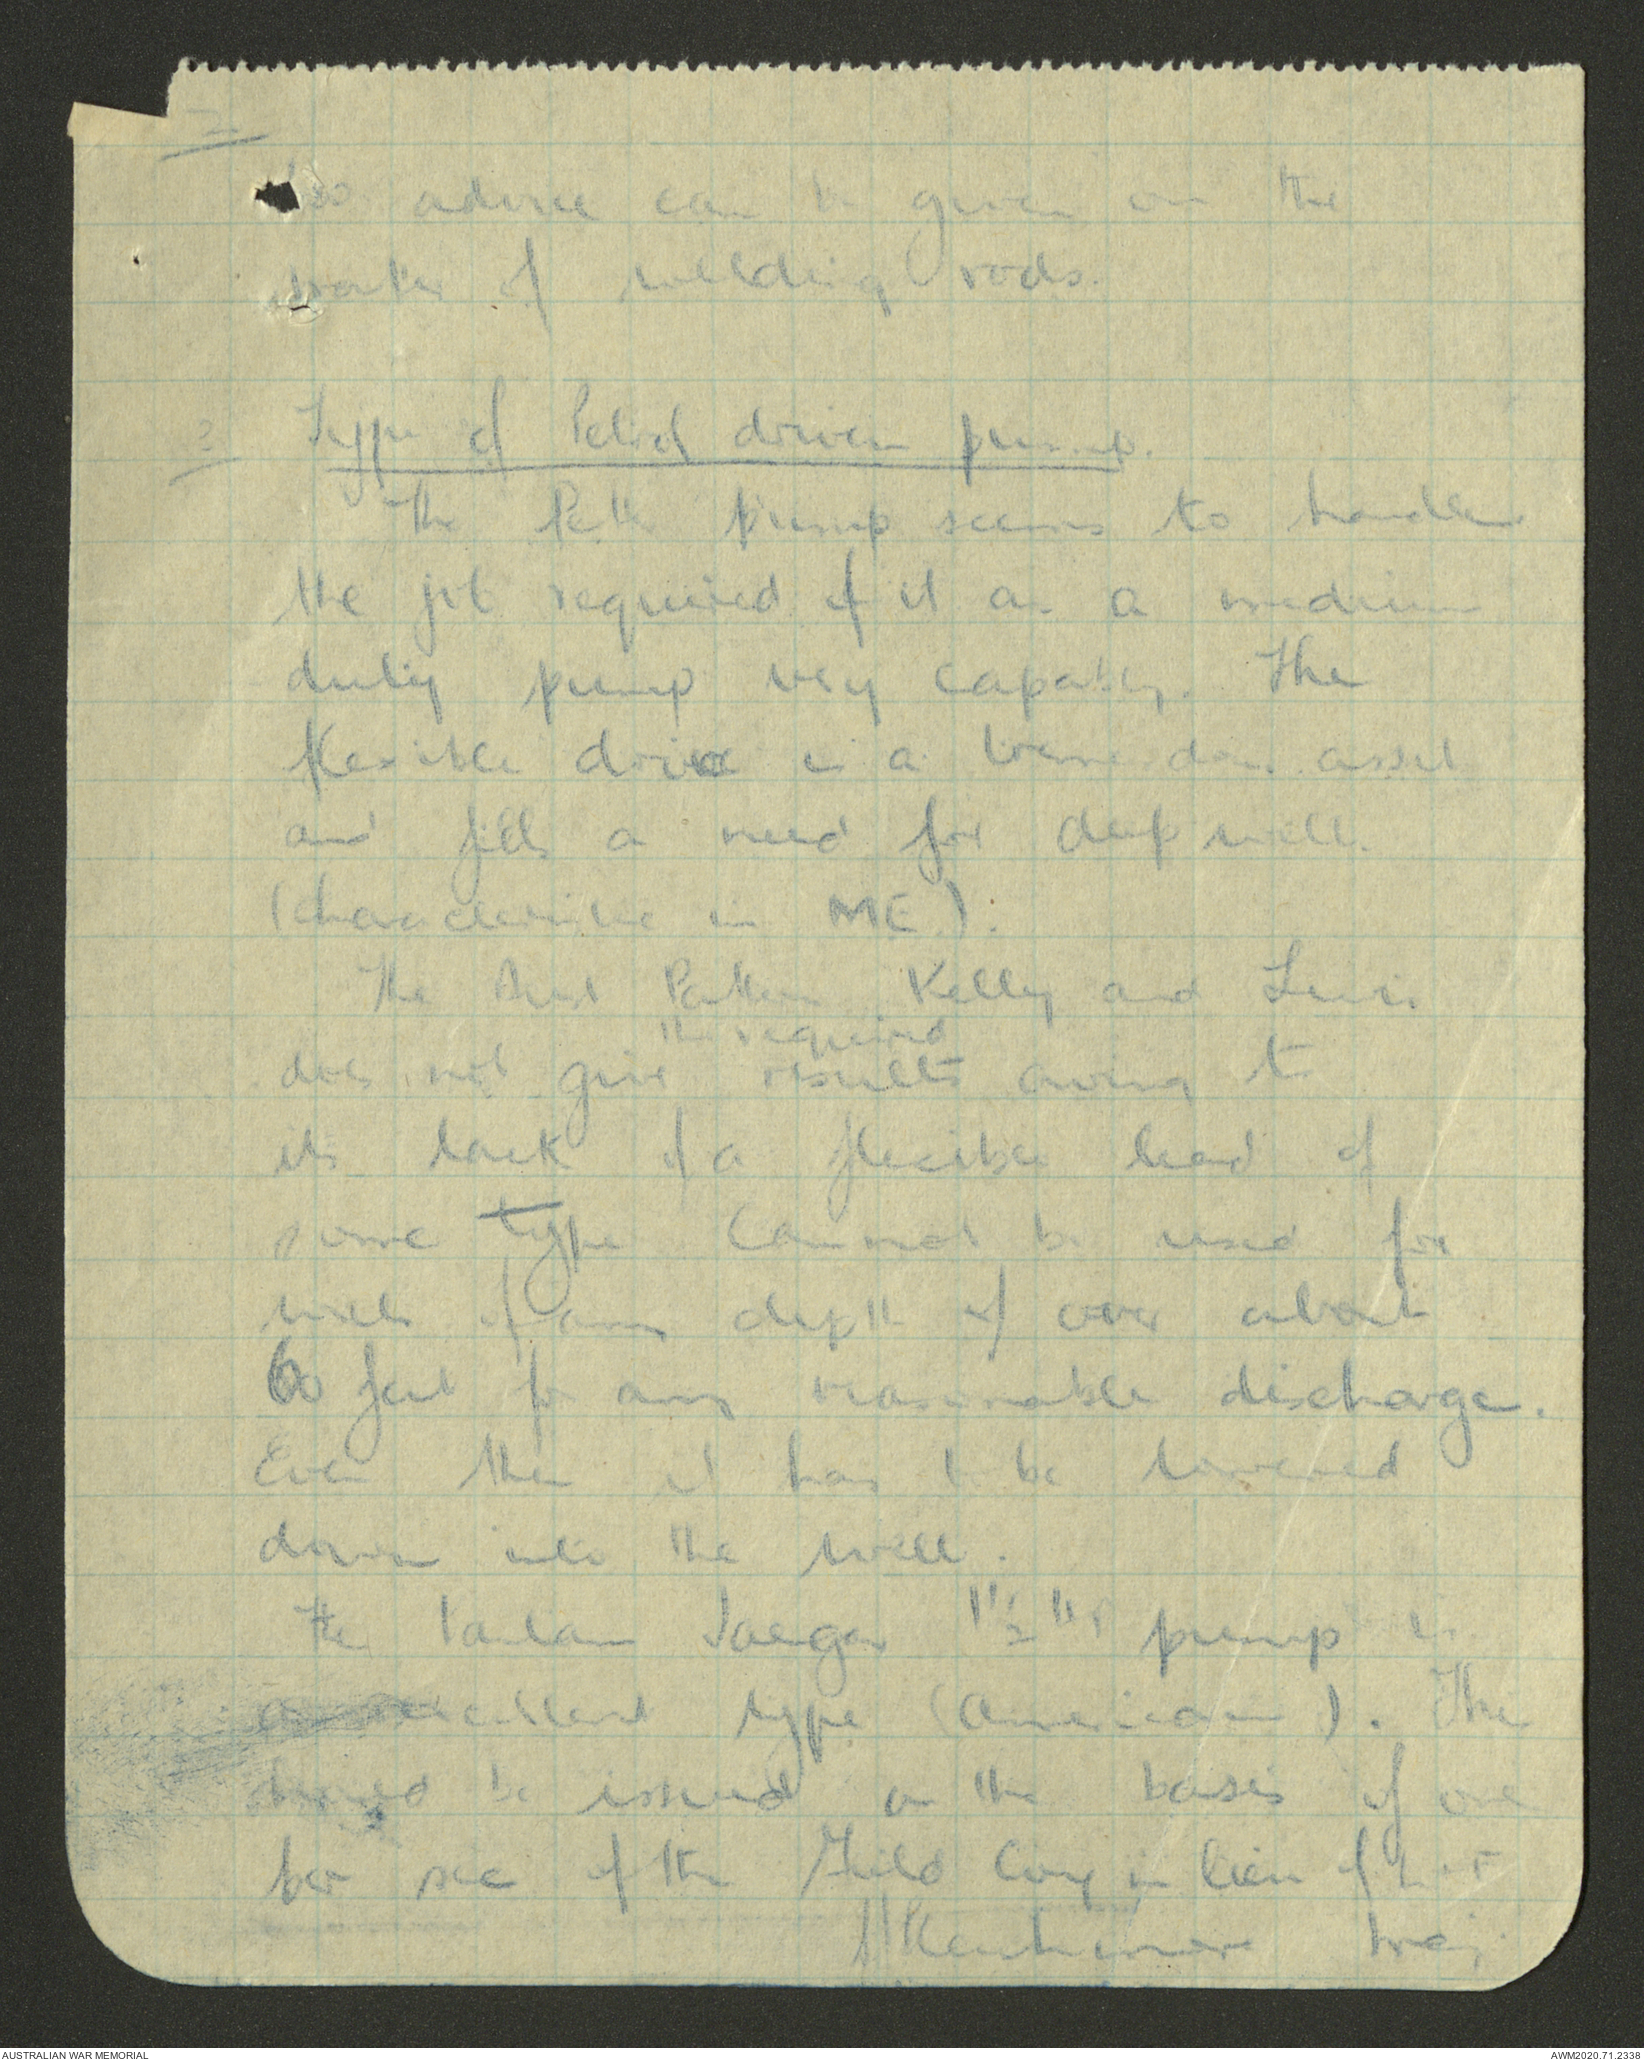 advice can be given on the
of welding rods.
? Type of Petrol driven pump.
The Petter pump seems to handle
the job required of it as a medium
duty pump very capably. The
flexible drive is a tremendous asset
and fills a need for deep wells
(characteristic in ME).
The Aust Pattern Kelly and Lewis
the required
does not give results owing to
its lack of a flexible lead of
some type Cannot be used for
wells of any depth of over about
60 feet for any reasonable discharge.
Even then it has to be lowered
down into the well.
The Jaeger 1½" pump is
an excellent type (American). The
should be issued on the basis of one
per sec of the Field Coy in lieu of
Maj
AUSTRALIAN WAR MEMORIAL
AWM2020.71.2338